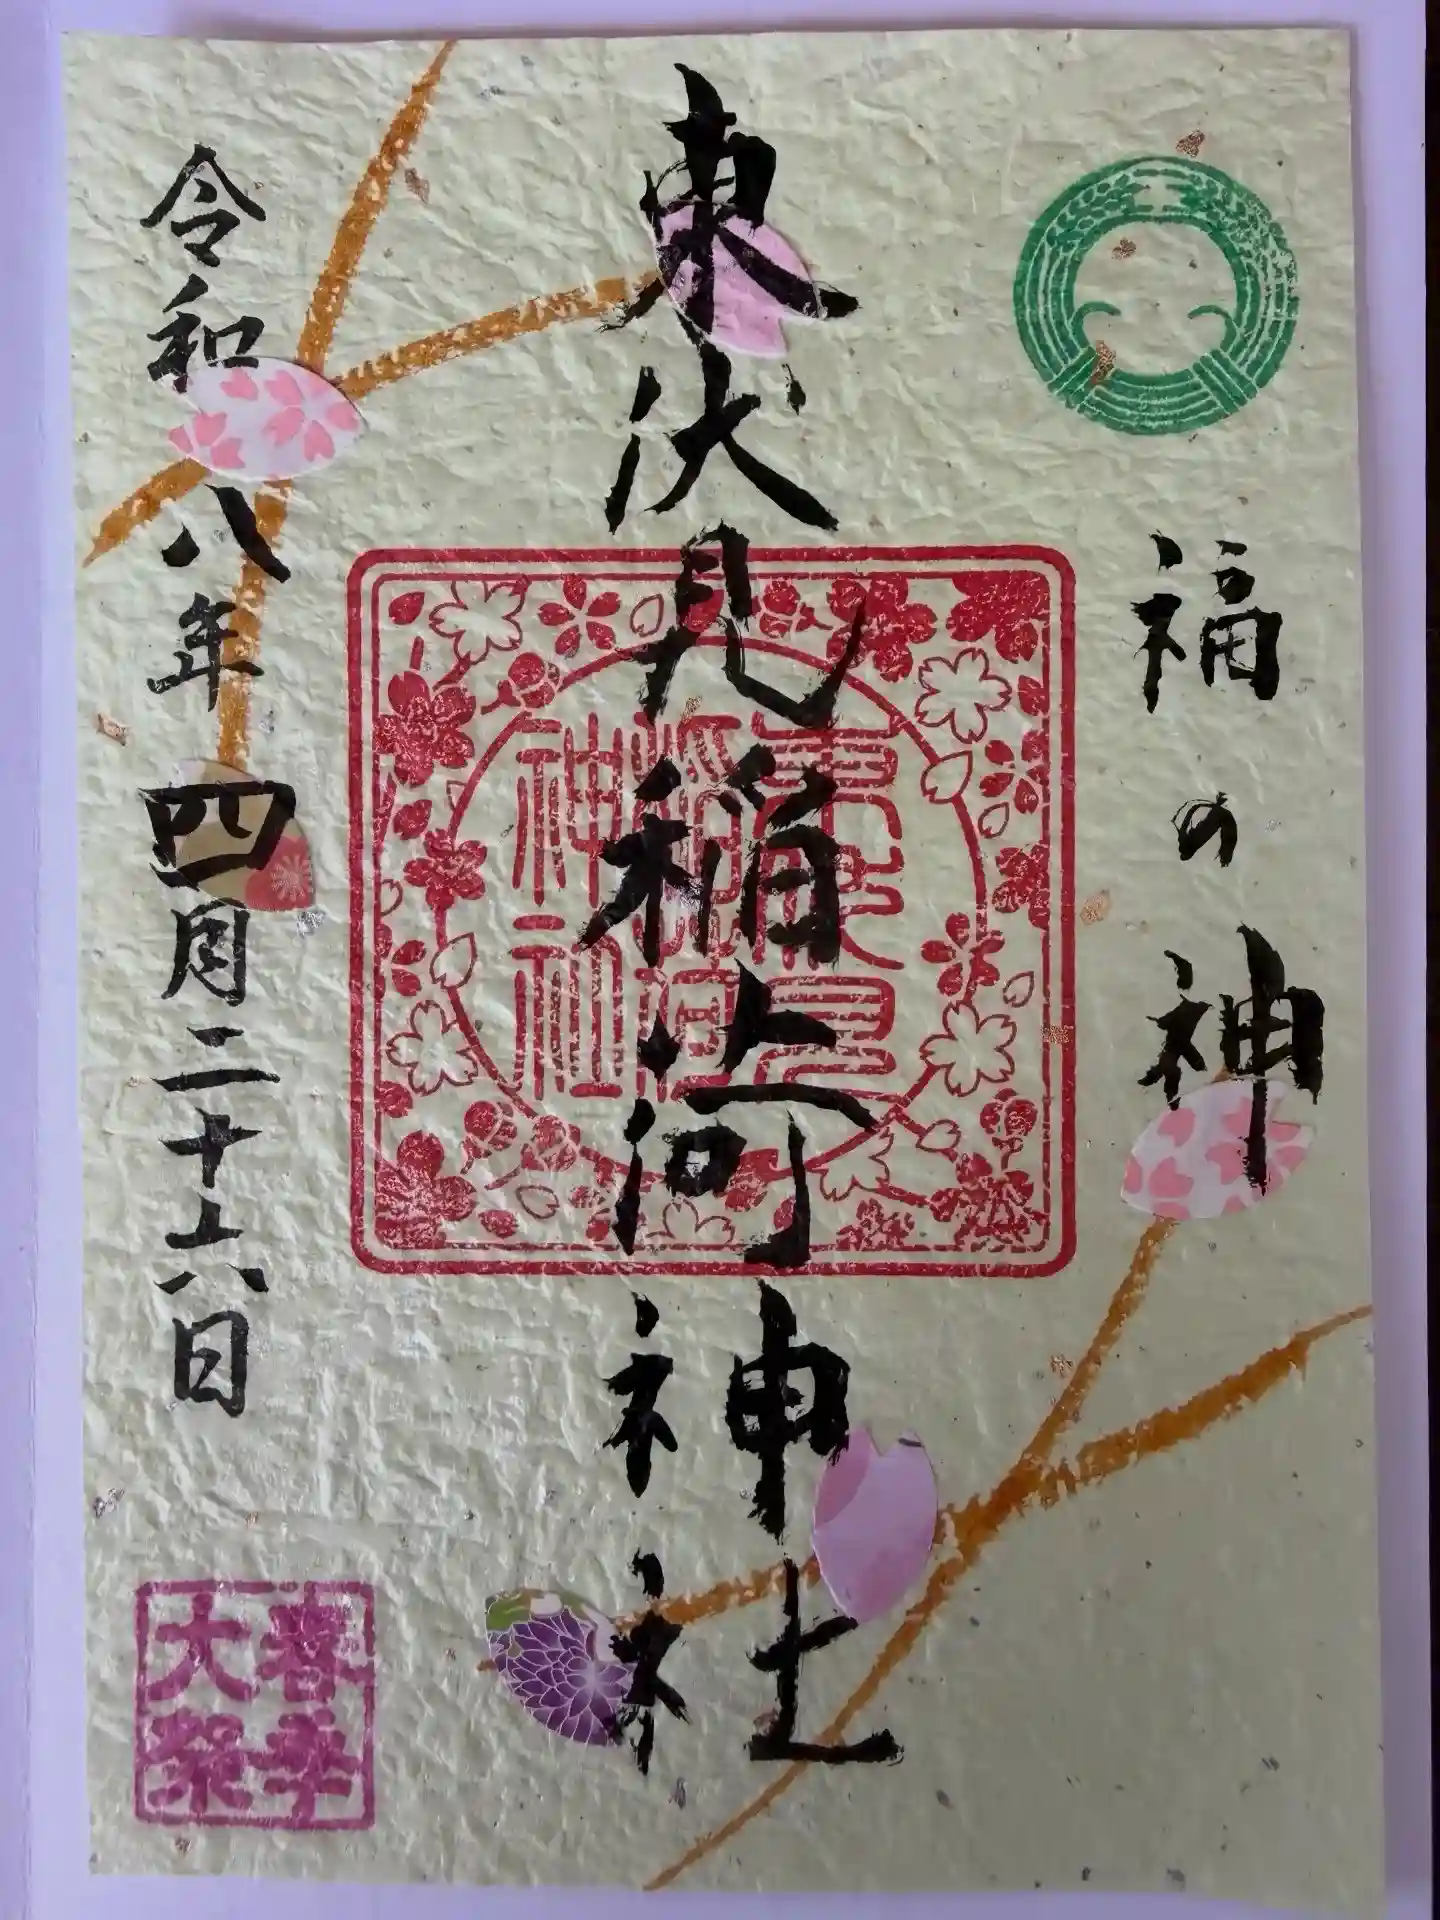 福の神
東伏見稲荷神社
東伏見
稲荷
神社
令和八年四月二十六日
春季
大祭